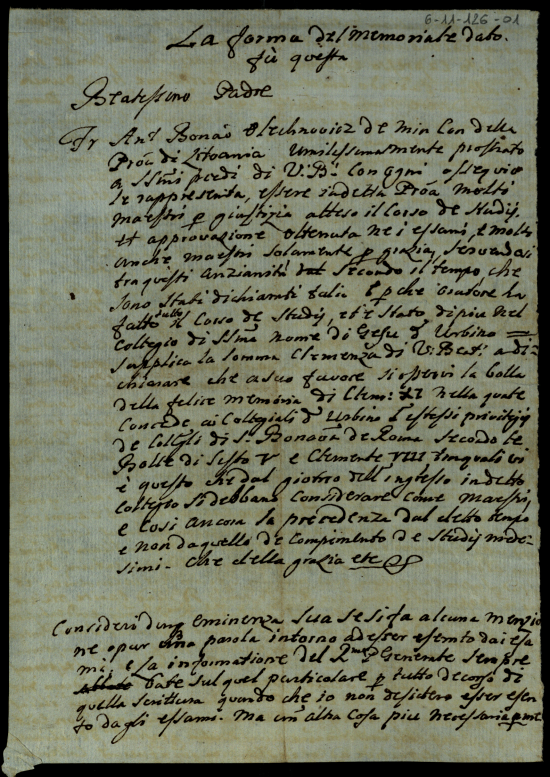 6-11-126-01
La forma del memoriale dato
fù questa
Beatissimo Padre
Fr Ant. Bonão Olechnovicz de Min Con della
Prõa di Litvania umilissimamente prostrato
a SSmi piedi di V: B: con ogni ossequio
le rappresenta, essere in detta Prõa molti
maestri p giustizia atteso il Corso de Studij,
et approvazione ottenuta ne i essami, e molti
anche maestri solamente p grazia, servandosi
tra questi anzianità secondo il tempo che
sono stati dichiarati tali E p che oratore ha
fatto tutto il Corso de Studij, et è stato di più nel
Collegio di SSmo nome di Gesu d'Urbino =
Supplica la somma Clemenza di V: Beat: a di-
chiarare che a suo favore si osservi la bolla
della felice memoria di Clem: nella quale
concede ai Collegiali d'Urbino l'istessi privilegij
de Collegij di S. Bonavã de Roma secondo le
Bolle di Sisto V e Clemente VIII tra quali vi
è questo che dal giorno dell'ingresso in detto
collegio si debbano considerare come maestri,
e cosi ancora la precedenza dal detto tempo
e non da quello de compimento de Studij mede-
simi- che della grazia etc
Consideri dunq eminenza sua se si fa alcuna menzio
ne opur una parola intorno ad esser esento dai esa
mi; e la informatione del Rmo P Generale sempre
batte sul quel particolare p tutto decorso di
quella scrittura quando che io non desidero esser esen
to dagli essami. Ma un' altra cosa piu necessaria